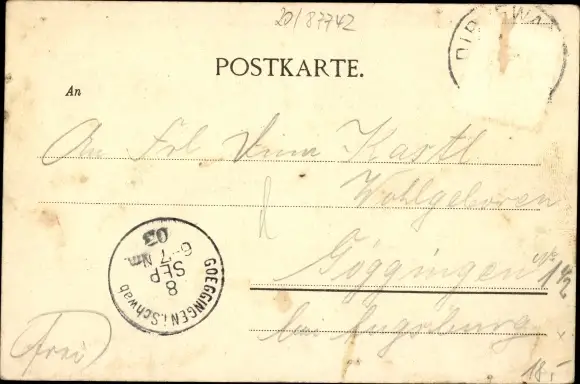 20/87742
POSTKARTE.
An
An Frl Kastl
Wohlgeboren
Göggingen
bei Augsburg
GOEGGINGEN i. Schwab
8
SEP
6-7 Nm.
03
(Frei)
18.-